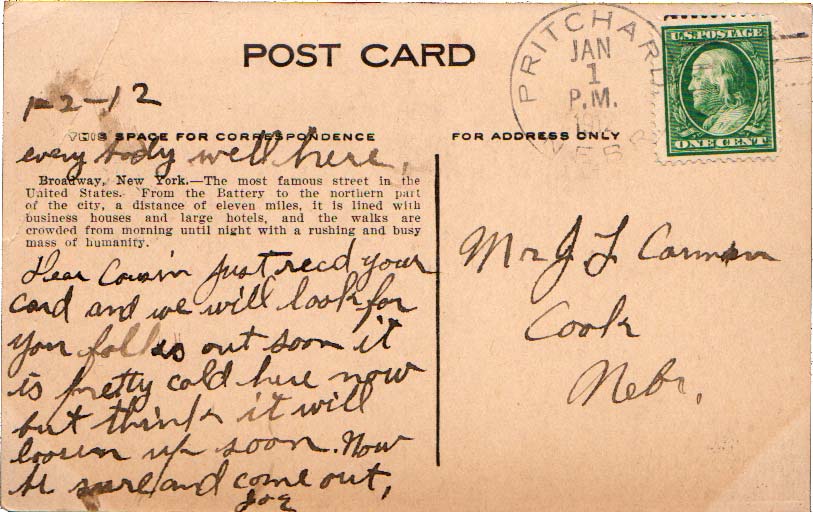 POST CARD
PRITCHARD
JAN
1
P.M.
NEBR
U.S. POSTAGE
ONE CENT
1-2-12
THIS SPACE FOR CORRESPONDENCE
FOR ADDRESS ONLY
every body well here,
Broadway, New York.—The most famous street in the
United States. From the Battery to the northern part
of the city, a distance of eleven miles, it is lined with
business houses and large hotels, and the walks are
crowded from morning until night with a rushing and busy
mass of humanity.
Dear Cousin just recd your
card and we will look for
you folks out soon it
is pretty cold here now
but think it will
loosen up soon. Now
be sure and come out,
Joe
Mr J L Carman
Cook
Nebr.